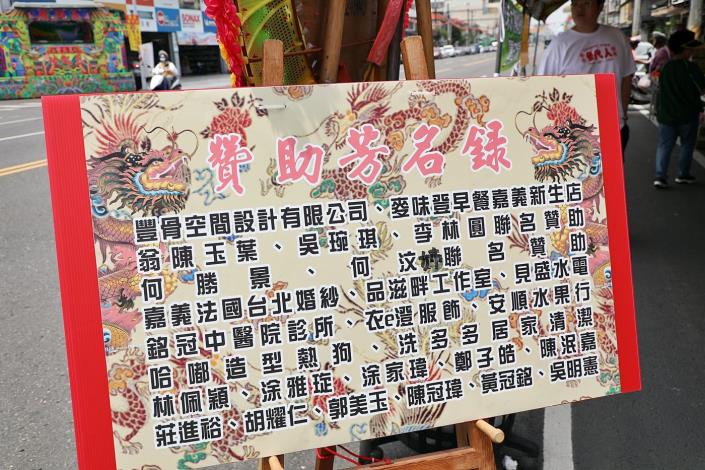 贊助芳名錄
豐骨空間設計有限公司、麥味登早餐嘉義新生店
翁陳玉葉、吳琬琪、李林圓聯名贊助
何勝景、何汶姉聯名贊助
嘉義法國台北婚紗、品滋畔工作室、見盛水電
銘冠中醫院診所、衣e瀅服飾、安順水果行
哈啷造型熱狗、洗多多居家清潔
林佩穎、涂雅琔、涂家瑋、鄭子皓、陳泯嘉
莊進裕、胡耀仁、郭美玉、陳冠瑋、黃冠銘、吳明憲